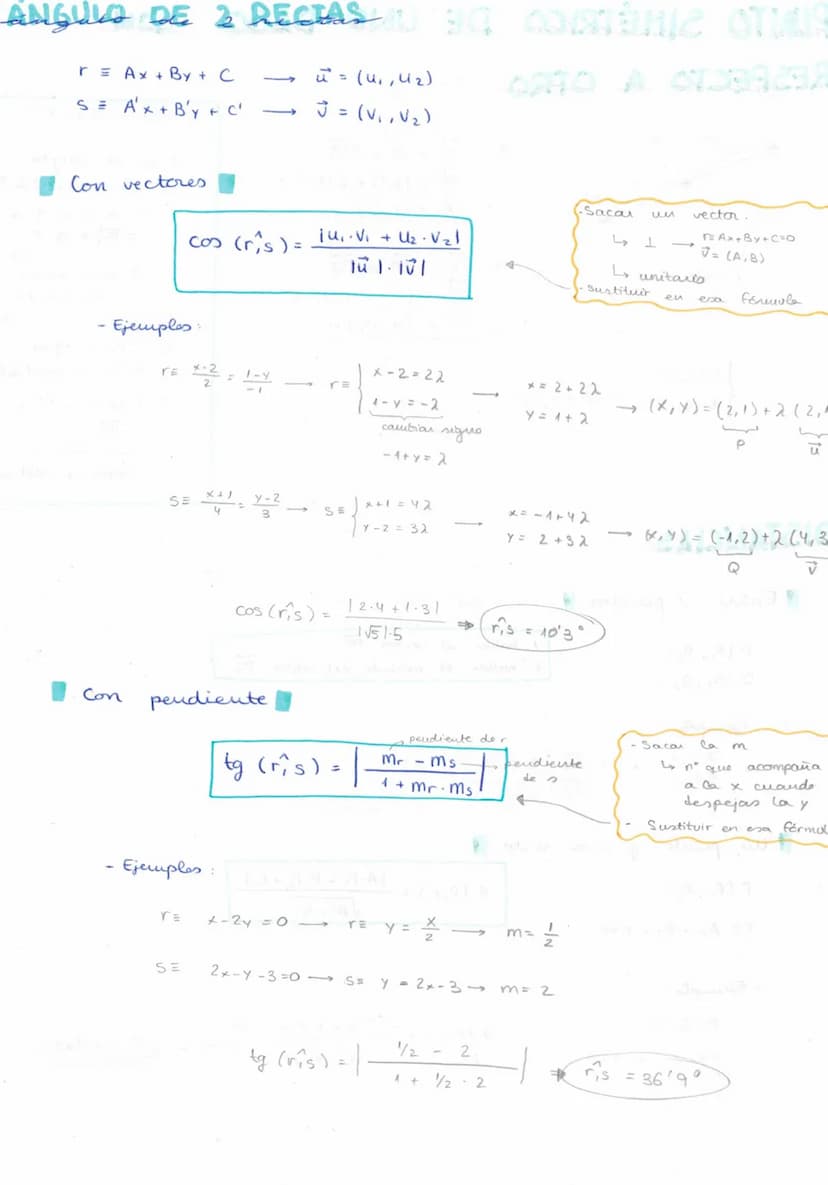 ÁNGULO DE 2 RECTAS
r ≡ Ax + By + C → u⃗ = (u₁, u₂)
s ≡ A'x + B'y + C' → v⃗ = (v₁, v₂)
Con vectores
cos (r,^s) = |u₁·v₁ + u₂·v₂| / |u⃗|·|v⃗|
- Sacar un vector.
↳ ⊥ → r≡Ax+By+C=0
v⃗ = (A,B)
↳ unitario
- Sustituir en esa fórmula
- Ejemplos:
r≡ (x-2)/2 = (1-y)/-1 → r≡ { x-2=2λ → x = 2+2λ → (x,y) = (2,1) + λ (2,
1-y=-λ y = 1+λ
cambiar signo P u⃗
-1+y=λ
s≡ (x+1)/4 = (y-2)/3 → s≡ { x+1 = 4λ → x= -1+4λ → (x,y) = (-1,2)+λ(4,3
y-2 = 3λ y = 2+3λ
Q v⃗
cos(r,^s) = |2·4+1·3| / |√5|·5 ⇒ r,^s = 10'3°
Con pendiente
tg (r,^s) = | (mr - ms) / (1 + mr·ms) |
pendiente de r
pendiente
de s
- Sacar la m
↳ nº que acompaña
a la x cuando
despejas la y
- Sustituir en esa fórmul
- Ejemplos:
r≡ x-2y=0 → r≡ y = x/2 → m= 1/2
s≡ 2x-y-3=0 → s≡ y = 2x-3 → m= 2
tg (r,^s) = | (1/2 - 2) / (1 + 1/2 · 2) | ⇒ r,^s = 36'9°